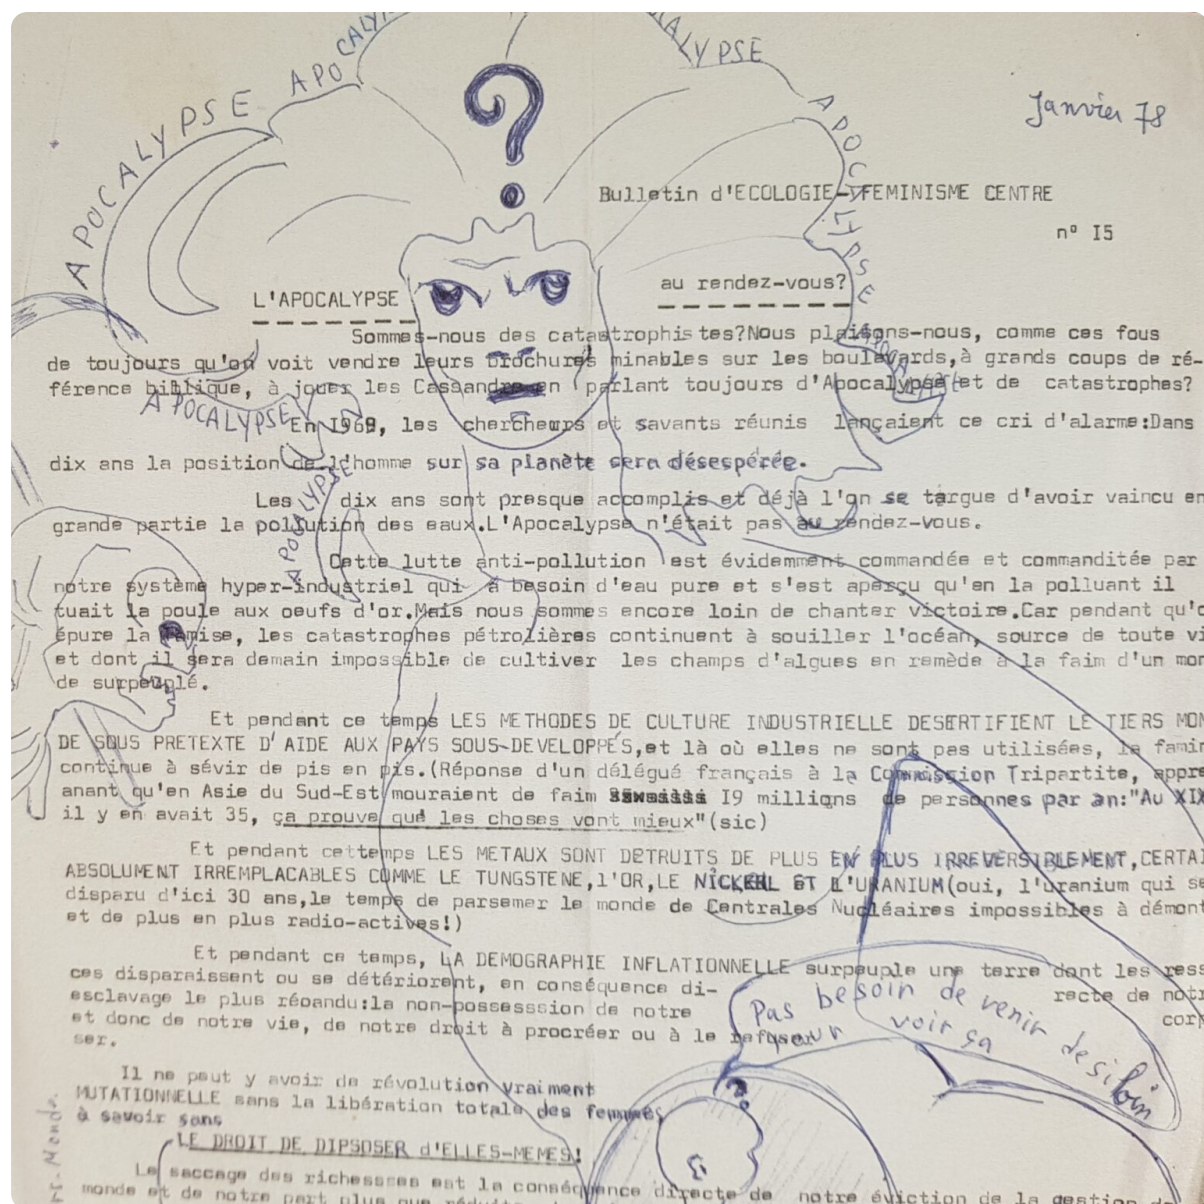 APOCALYPSE APOCALYP ALYPSE APOCALYPSE
?
Janvier 78
Bulletin d'ECOLOGIE-FEMINISME CENTRE
nº I5
L'APOCALYPSE au rendez-vous?
Sommes-nous des catastrophistes?Nous plaisons-nous, comme ces fous
de toujours qu'on voit vendre leurs brochures minables sur les boulevards,à grands coups de ré-
férence biblique, à jouer les Cassandre en parlant toujours d'Apocalypse et de catastrophes?
APOCALYPSE
En I969, les chercheurs et savants réunis lançaient ce cri d'alarme:Dans
dix ans la position de l'homme sur sa planète sera désespérée.
APOCALYPSE
Les dix ans sont presque accomplis et déjà l'on se targue d'avoir vaincu en
grande partie la pollution des eaux.L'Apocalypse n'était pas au rendez-vous.
Cette lutte anti-pollution est évidemment commandée et commanditée par
notre système hyper-industriel qui a besoin d'eau pure et s'est aperçu qu'en la polluant il
tuait la poule aux oeufs d'or.Mais nous sommes encore loin de chanter victoire.Car pendant qu'o
épure la Tamise, les catastrophes pétrolières continuent à souiller l'océan, source de toute vi
et dont il sera demain impossible de cultiver les champs d'algues en remède à la faim d'un mon
de surpeuplé.
Et pendant ce temps LES METHODES DE CULTURE INDUSTRIELLE DESERTIFIENT LE TIERS MON
DE SOUS PRETEXTE D'AIDE AUX PAYS SOUS-DEVELOPPÉS,et là où elles ne sont pas utilisées, la famin
continue à sévir de pis en pis.(Réponse d'un délégué français à la Commission Tripartite, appre
anant qu'en Asie du Sud-Est mouraient de faim I9 millions de personnes par an:"Au XIX
il y en avait 35, ça prouve que les choses vont mieux"(sic)
Et pendant cettemps LES METAUX SONT DETRUITS DE PLUS EN PLUS IRREVERSIBLEMENT,CERTAI
ABSOLUMENT IRREMPLACABLES COMME LE TUNGSTENE,l'OR,LE NICKEL ET L'URANIUM(oui, l'uranium qui se
disparu d'ici 30 ans,le temps de parsemer le monde de Centrales Nucléaires impossibles à démont
et de plus en plus radio-actives!)
Et pendant ce temps, LA DEMOGRAPHIE INFLATIONNELLE surpeuple une terre dont les ress
ces disparaissent ou se détériorent, en conséquence di- recte de notr
esclavage le plus réoandu:la non-possesssion de notre corp
et donc de notre vie, de notre droit à procréer ou à le refuser
ser.
Pas besoin de venir de si loin
voir ça
Il ne peut y avoir de révolution vraiment
MUTATIONNELLE sans la libération totale des femmes,
à savoir sans
LE DROIT DE DIPSOSER d'ELLES-MEMES!
Le saccage des richessses est la conséquence directe de notre éviction de la gestion
monde et de notre part plus que